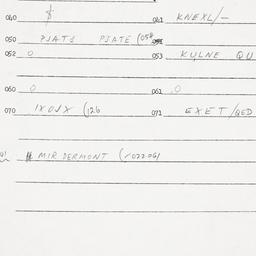 040 $ 041 KNEXL/-
050 PJATJ PJATE (058 051
052 0 053 KULNE QU
060 0 061 .0
070 IXOJX (126 071 EXET/QED
# MIR DERMONT (